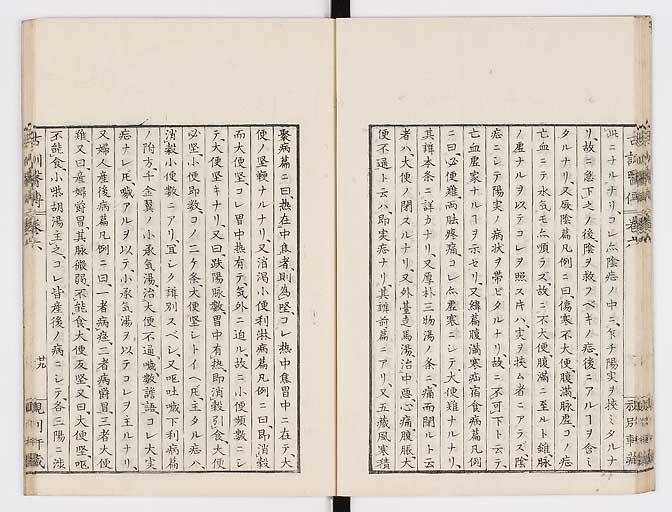 此ニナルナリコレ亦陰症ノ中ニ乍チ陽実ヲ挟ミタルナ
リ、故ニ急下之ノ後陰ヲ救フベキノ症、後ニアルヿヲ含ミ
タルナリ、又厥陰篇凡例ニ曰傷寒不大便腹満脉虚コノ症
亡血ニテ水気モ亦順ラズ故ニ不大便腹満ニ至ルト雖脉
ノ虚ナルヲ以テコレヲ照ス片ハ実ヲ挟ム者ニアラズ陰
症ニシテ陽実ノ病状ヲ帯ビタルナリ故ニ不可下ト云テ
亡血虚家ナルヿヲ示セリ、又緯篇腹満寒疝宿食病篇凡例
ニ曰必便難両胠疼痛コレ亦虚寒ニシテ大便難ナルナリ、
其辨本条ニ詳カナリ又厚朴三物湯ノ条ニ痛而閉ルト云
者ハ大便ノ閉スルナリ、又外臺走馬湯治中悪心痛腹脹大
便不通ト云ハ即実症ナリ、其辨前篇ニアリ、又五蔵風寒積
聚病篇ニ曰熱在中焦者則為堅、コレ熱中焦胃中ニ在テ大
便ノ堅鞕ナルナリ、又消渇小便利淋病篇凡例ニ曰、即消穀
而大便堅コレ胃中熱有テ気外ニ迫ル、故ニ小便頻数ニシ
テ大便堅キナリ、又曰、趺陽脉数胃中有熱即消穀引食大便
必堅小便即数、コノ二ケ条大便堅シトイヘ𪜈主タル症ハ
消穀小便数ニアリ、宜シク辨別スベシ、又嘔吐噦下利病篇
ノ附方千金翼ノ小承気湯治大便不通噦数譫語コレ大実
症ナレ𪜈噦アルヲ以テ小承気湯ヲ以テコレヲ主ルナリ、
又婦人産後病篇凡例ニ曰、一者病痙、二者病欝冒、三者大便
難又曰産婦欝冒、其脉微弱、不能食、大便反堅、又曰、大便堅嘔
不能食、小柴胡湯主之、コレ皆産後ノ病ニシテ各三陽ニ渉